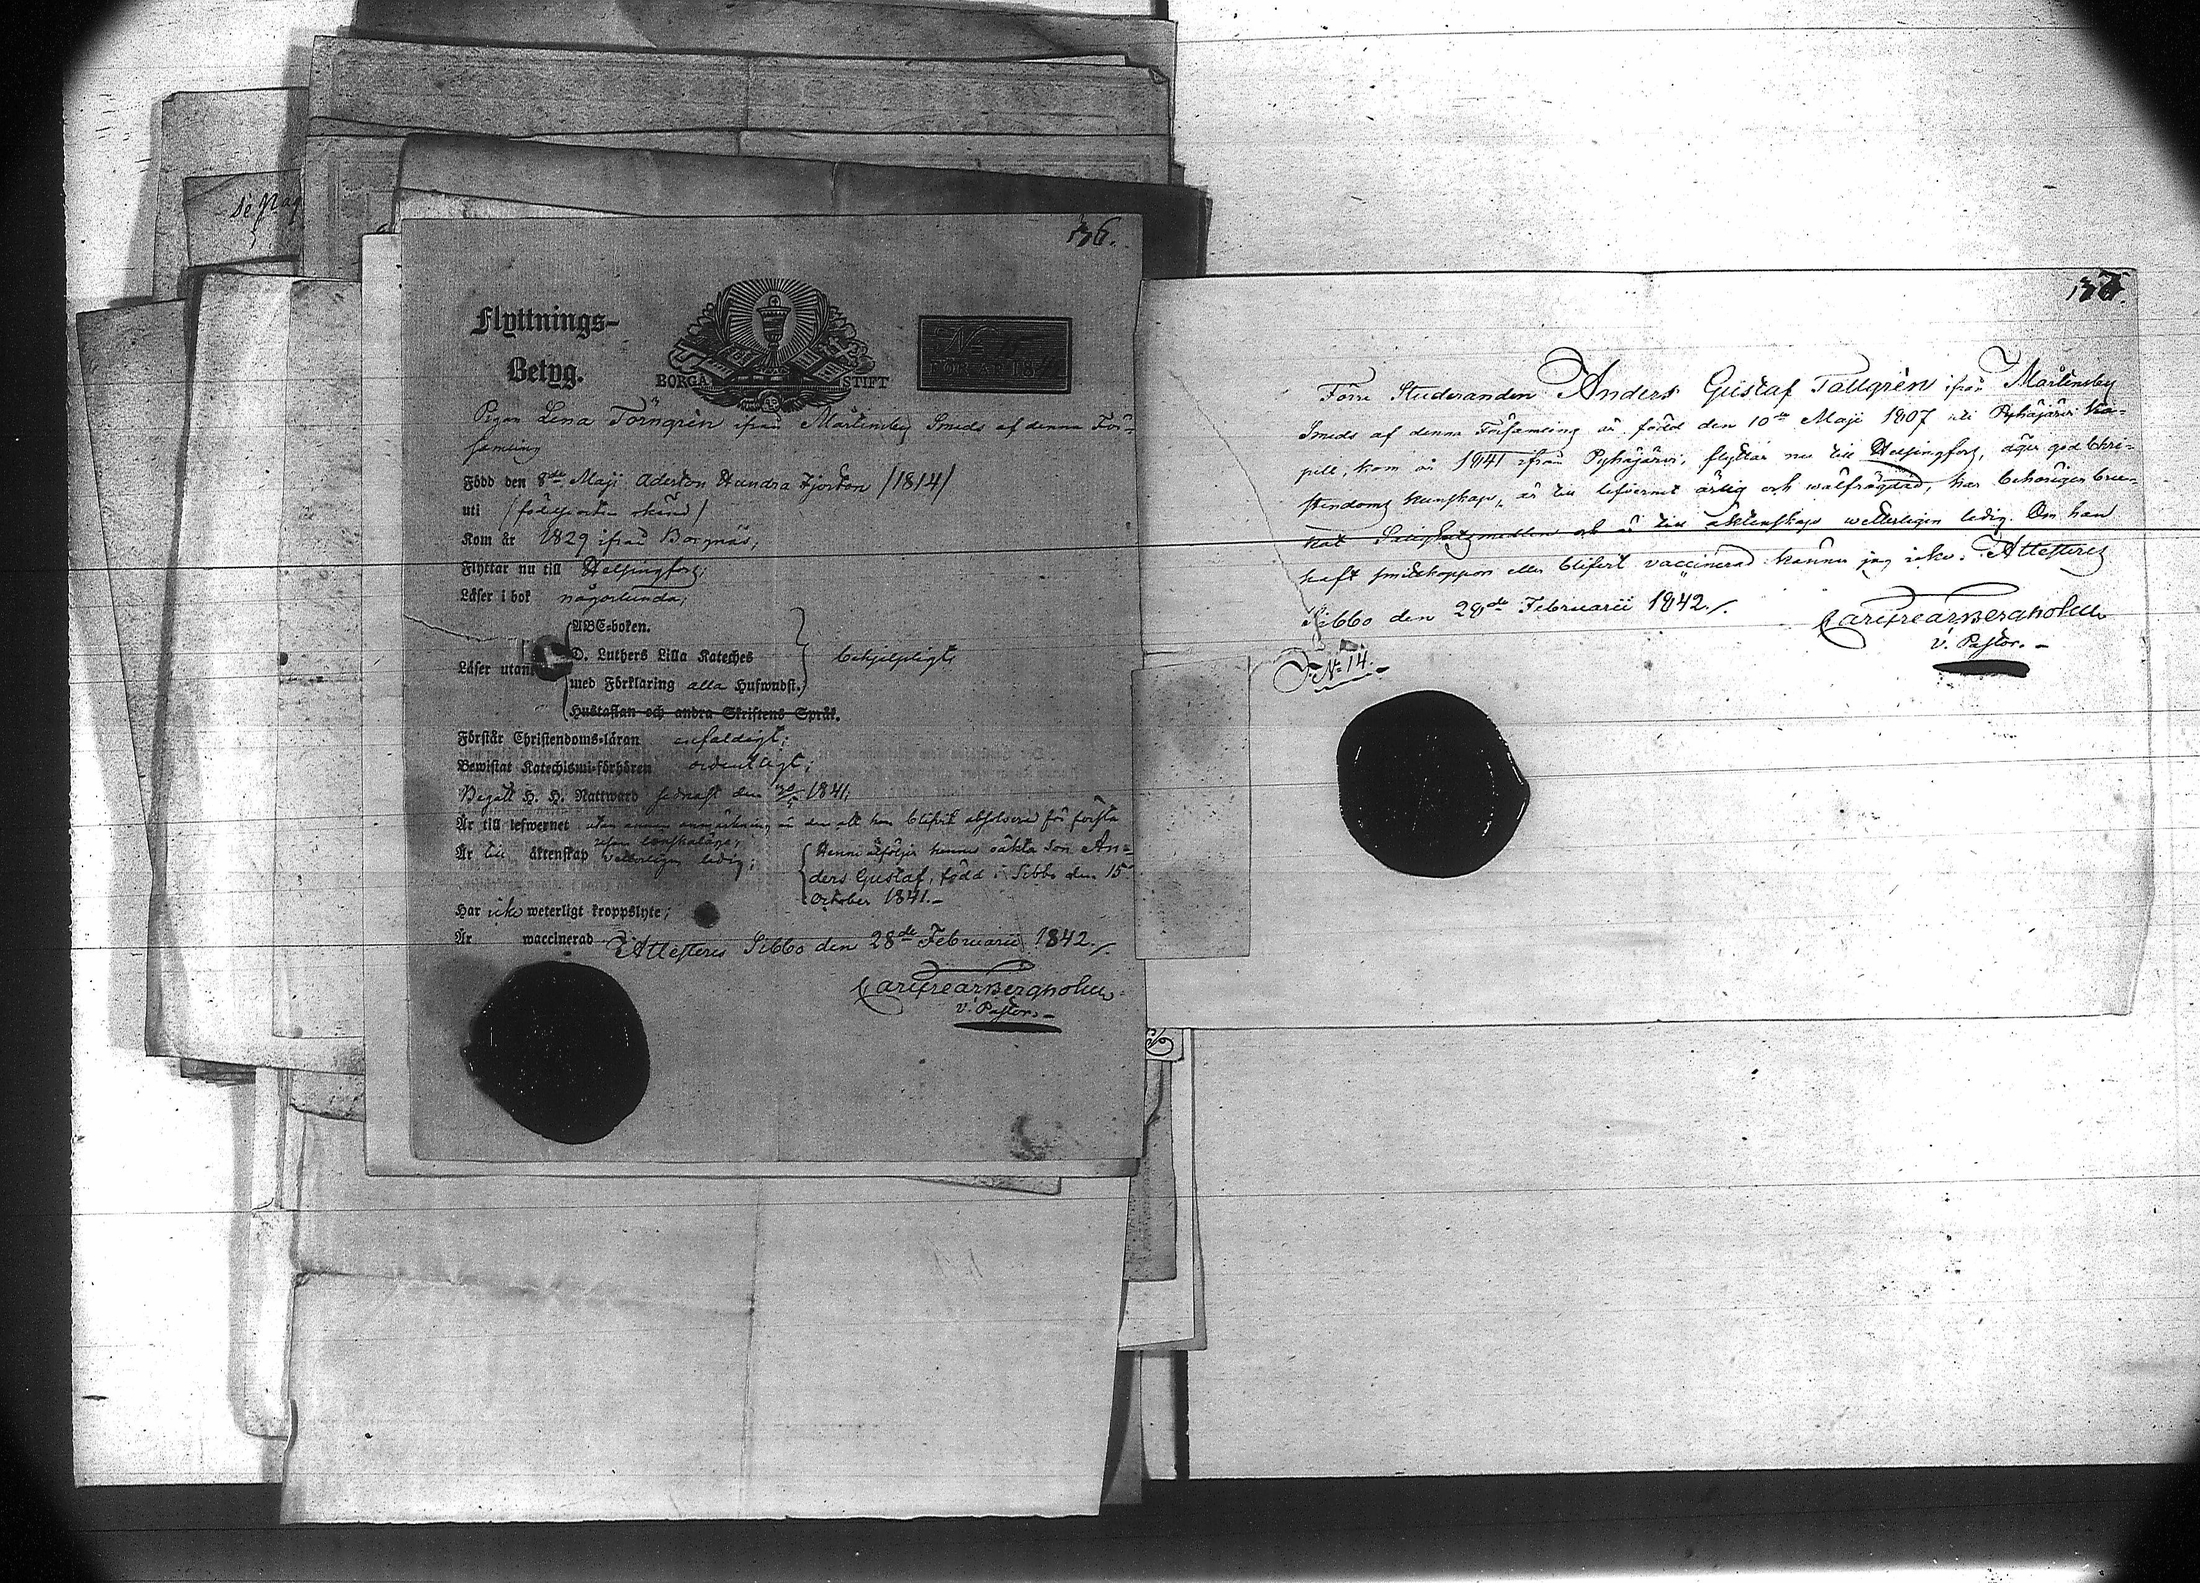 136.
Flyttnings-
Betyg.
BORGÅ STIFT
FÖR ÅR 184
Pigan Lena Törngrén ifrån Mårtensby Smeds af denna För-
samling
Född den 8de Maji Aderton Hundra Fjorton /1814/
uti
Kom år 1829 ifrån Borgnäs,
Flyttar nu till Helsingfors;
Läser i bok någorlunda;
ABC-boken.
Läser utan D. Luthers Lilla Kateches behjelpligt
med Förklaring alla Hufwudst.
Hustaflan och andra Skriftens Språk.
Förstår Christendoms-läran enfaldigt;
Bewistat Katechismi-förhören ordentligt;
Begått H. H. Nattward sednast den 1841;
Är till lefwernet utan annan anmärkning än den att hon blifvit absolverad för första
resan lönskaläge,
Är till äktenskap wetterligen ledig;
Henne åtföljer hennes oäkta Son An-
ders Gustaf, född i Sibbo den 15
October 1841.-
Har icke weterligt kroppslyte;
Är waccinerad
Attesteras Sibbo den 28de Februarii 1842./.
v. Pastor.-
Förre Studeranden Anders Gustaf Tallgrén ifrån Mårtensby
Smeds af denna Församling är född den 10de Maji 1807 uti Pyhäjärvi Ka-
pell, kom år 1841 ifrån Pyhäjärvi, flyttar nu till Helsingfors, äger god Chri-
stendoms kunskap, är till lefvernet ärlig och wälfrägdad, har behörigen bru-
kat Salighetsmedlen och är till äktenskap wetterligen ledig. Om han
haft smittkoppor eller blifvit vaccinerad känner jag icke. Attesteras
Sibbo den 28de Februarii 1842./.
v. Pastor.-
No 14.